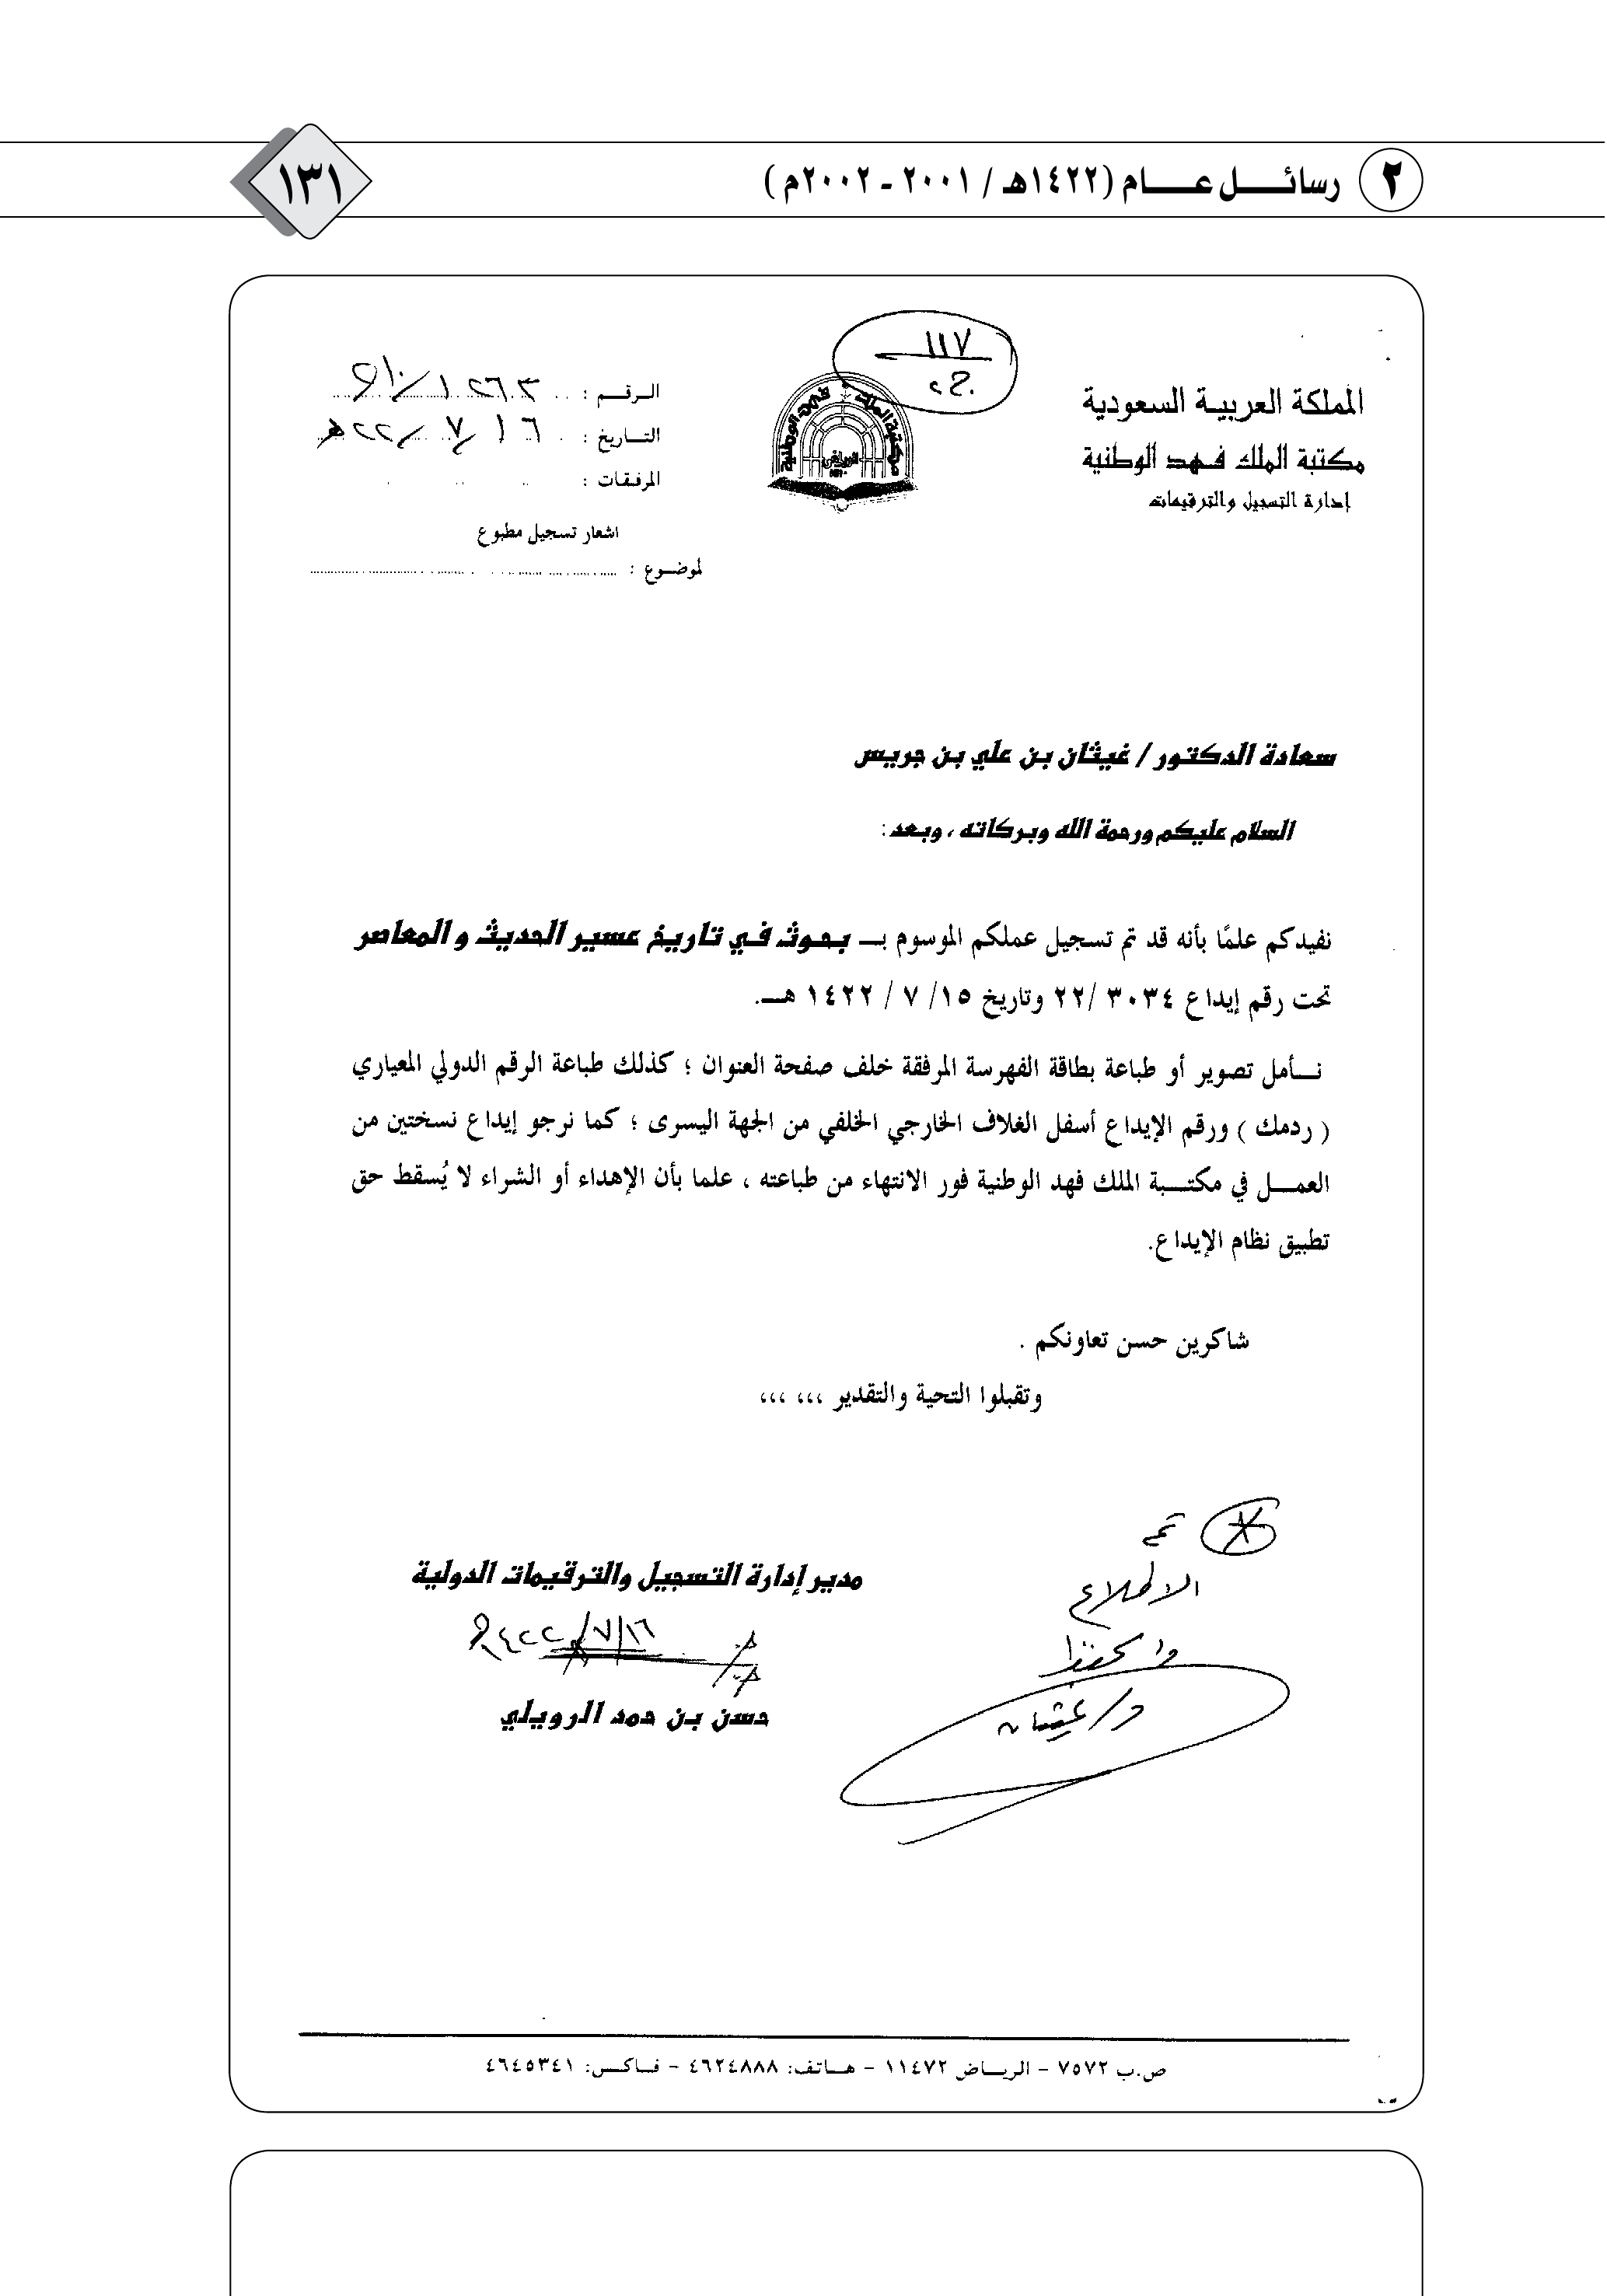 ٢ رسائـــــل عـــــام (١٤٢٢هـ / ٢٠٠١ ـ ٢٠٠٢م )
١٣١
١١٧
المملكة العربيـة السعودية
مكتبة الملك فـهد الوطنية
إدارة التسجيل والترقيمات
الرقـــم :
التـــاريخ : ١٦ / ٧ / ٢٢هـ
المرفـقات :
اشعار تسجيل مطبوع
لموضــوع :
سعادة الدكتـور / غيـثان بـن علي بـن جريس
السلام عليكم ورحمة الله وبـركاتـه ، وبـعد :
نفيدكم علمًا بأنه قد تم تسجيل عملكم الموسوم بـــ بـحوث فـي تـاريـخ عسيـر الحديـث و المعاصر
تحت رقم إيداع ٣٠٣٤ /٢٢ وتاريخ ١٥/ ٧ / ١٤٢٢ هــ.
نــأمل تصوير أو طباعة بطاقة الفهرسة المرفقة خلف صفحة العنوان ؛ كذلك طباعة الرقم الدولي المعياري
( ردمك ) ورقم الإيداع أسفل الغلاف الخارجي الخلفي من الجهة اليسرى ؛ كما نرجو إيداع نسختين من
العمـــل في مكتـــبة الملك فهد الوطنية فور الانتهاء من طباعته ، علما بأن الإهداء أو الشراء لا يُسقط حق
تطبيق نظام الإيداع.
شاكرين حسن تعاونكم .
وتقبلوا التحية والتقدير ،،، ،،،
تم
الاطلاع
والحفظ
د/ غيثان
مديـر إدارة التسجيل والتـرقـيمات الدولية
١٦/٧/١٤٢٢هـ
حسن بـن حمد الرويـلي
ص.ب ٧٥٧٢ - الريــاض ١١٤٧٢ - هــاتف: ٤٦٢٤٨٨٨ - فــاكـس: ٤٦٤٥٣٤١